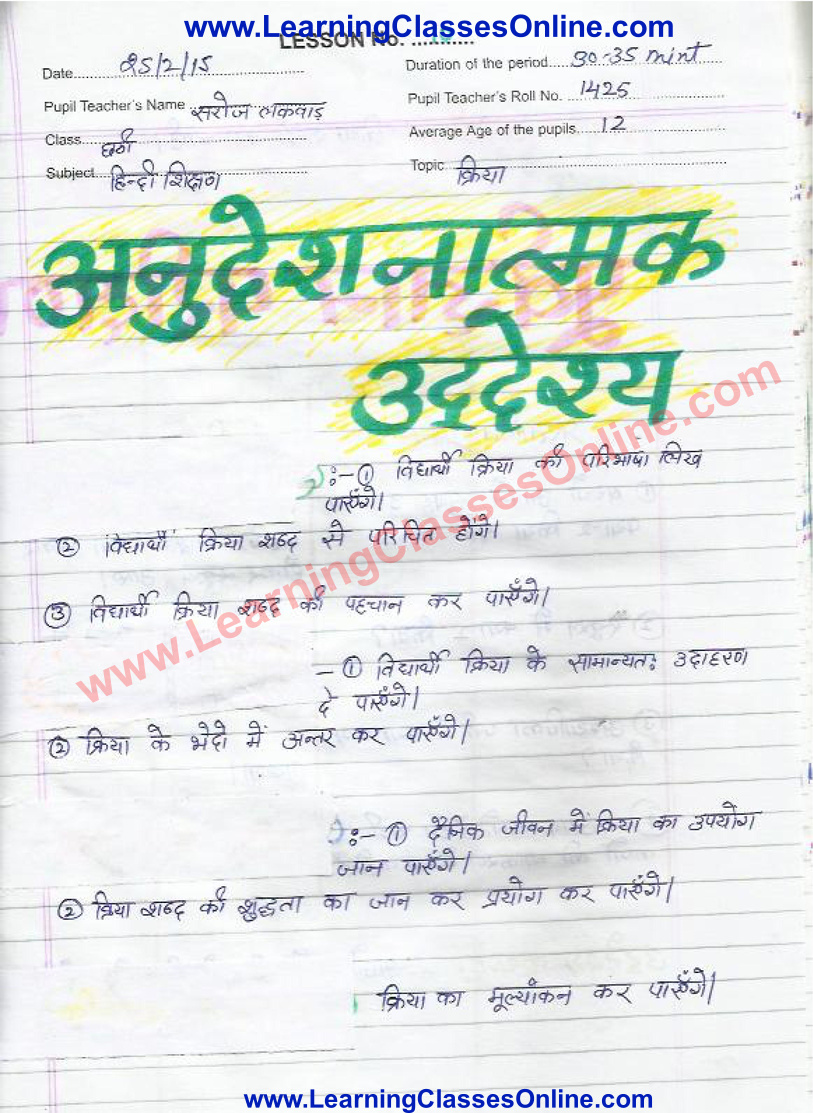 www.LearningClassesOnline.com
LESSON No. ............
Date....25/2/15....
Duration of the period....30-35 mint....
Pupil Teacher's Name....सरोज लकवाड़....
Pupil Teacher's Roll No. ....1425....
Class....छठी....
Average Age of the pupils....12....
Subject....हिन्दी शिक्षण....
Topic....क्रिया....
अनुदेशनात्मक
उद्देश्य
:-① विद्यार्थी क्रिया की परिभाषा लिख
पाएँगे।
② विद्यार्थी क्रिया शब्द से परिचित होंगे।
③ विद्यार्थी क्रिया शब्द की पहचान कर पाएँगे।
-① विद्यार्थी क्रिया के सामान्यतः उदाहरण
दे पाएँगे।
② क्रिया के भेदो में अन्तर कर पाएँगे।
:-① दैनिक जीवन में क्रिया का उपयोग
जान पाएँगे।
② क्रिया शब्द की शुद्धता का जान कर प्रयोग कर पाएँगे।
क्रिया का मूल्यांकन कर पाएँगे।
www.LearningClassesOnline.com
www.LearningClassesOnline.com